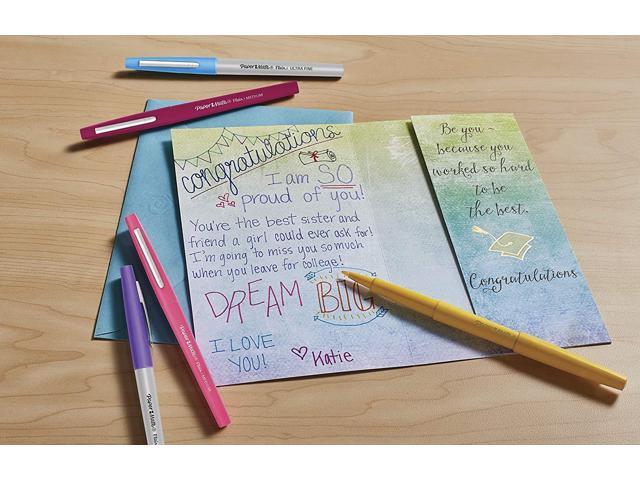 Paper Mate Flair ULTRA FINE
Paper Mate Flair MEDIUM
congratulations
I am SO
proud of you!
You're the best sister and
friend a girl could ever ask for!
I'm going to miss you so much
when you leave for college!
DREAM BIG
I LOVE
YOU!
Katie
Be you ~
because you
worked so hard
to be
the best.
Congratulations
Paper Mate Flair
Paper Mate Flair